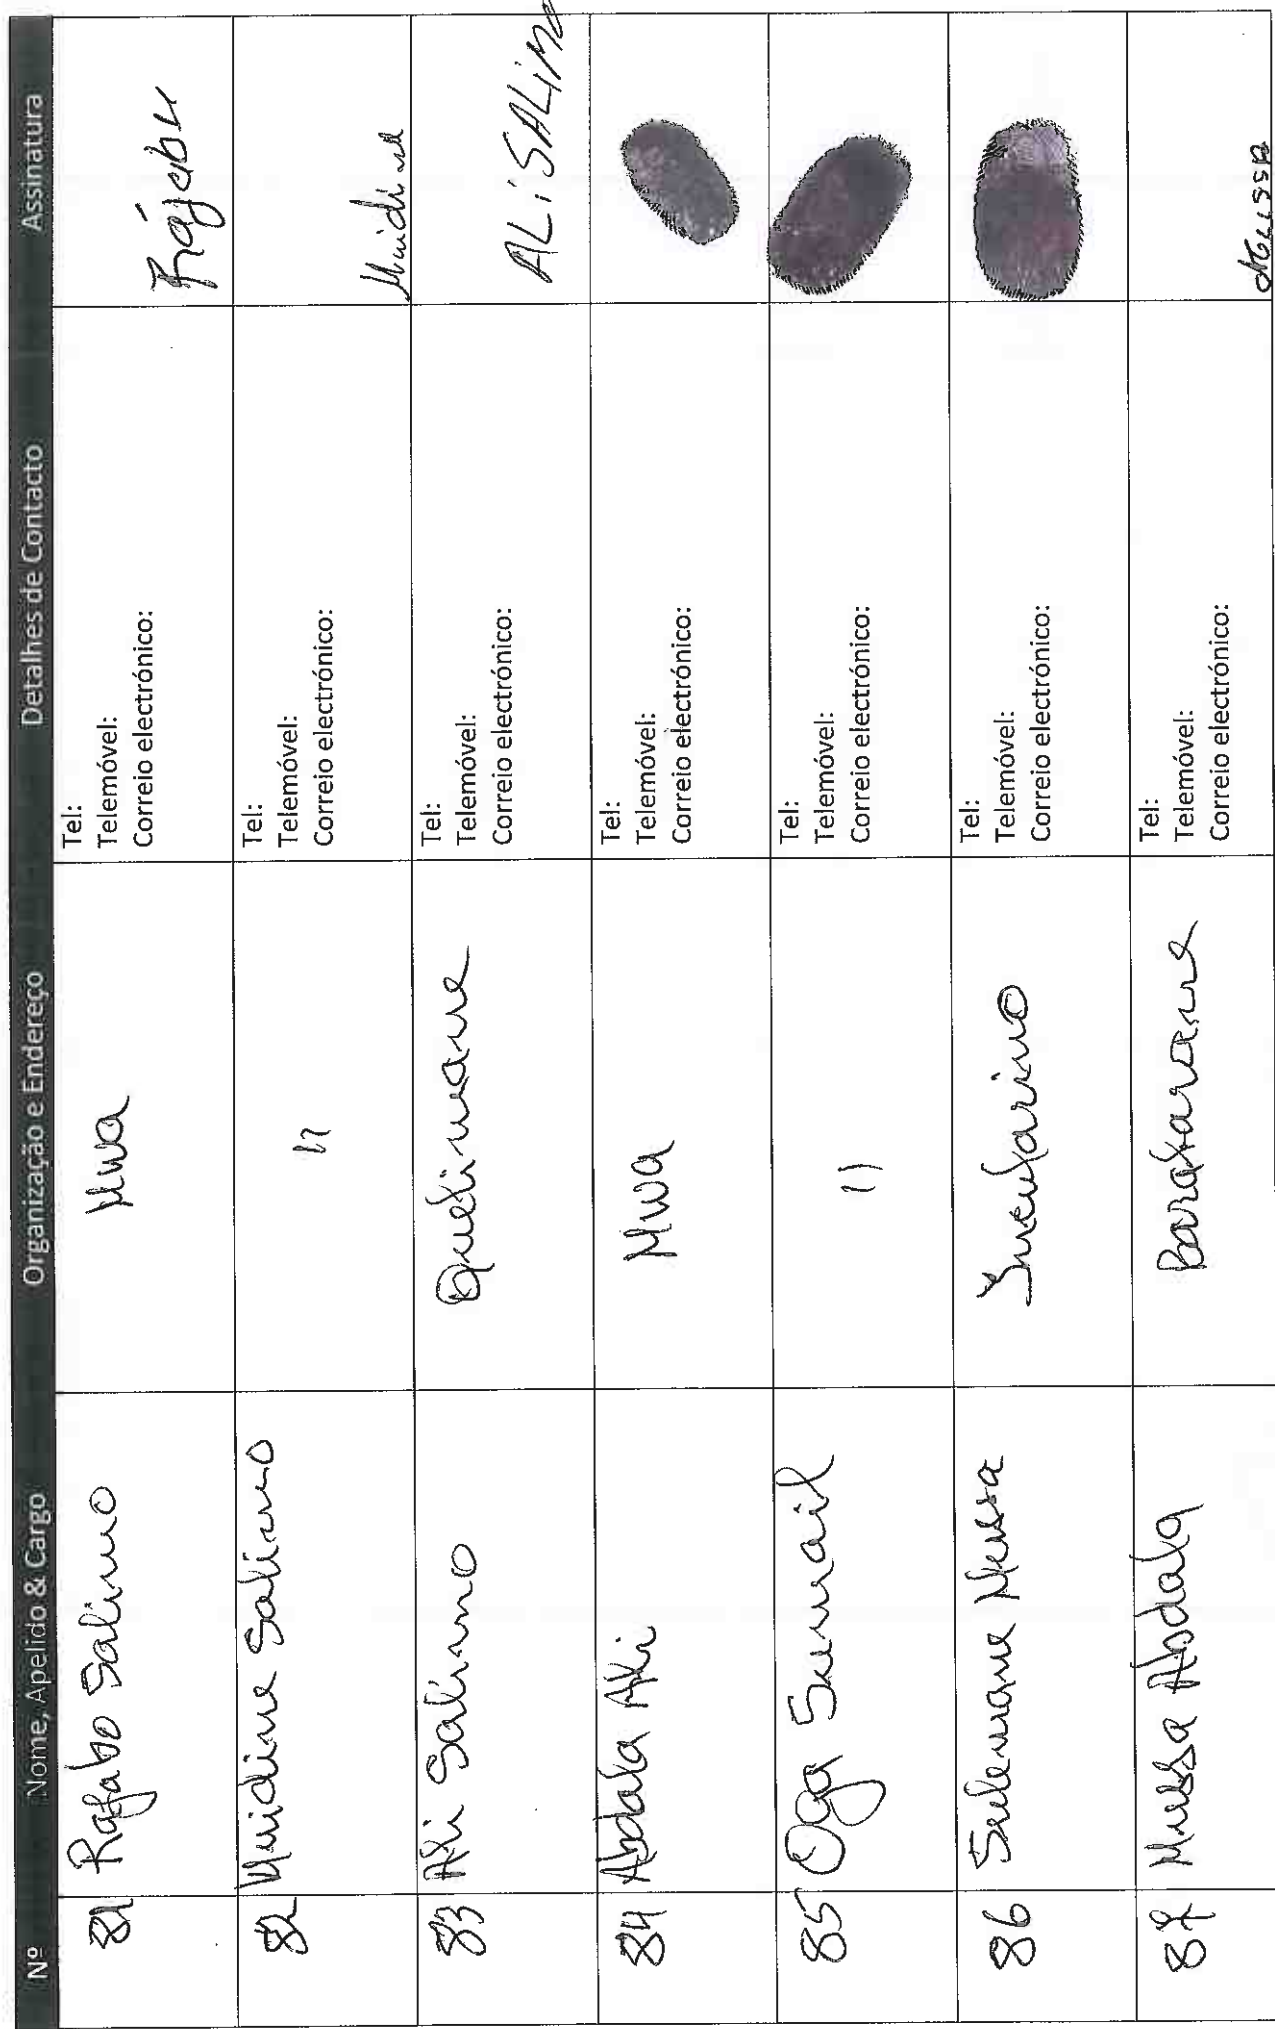 Nº Nome, Apelido & Cargo Organização e Endereço Detalhes de Contacto Assinatura
81 Rajabo Salimo Mwa Tel: Rájabu
Telemóvel:
Correio electrónico:
82 Muidine Salimo 11 Tel: Muidine
Telemóvel:
Correio electrónico:
83 Ali Salimo Quelimane Tel: ALiSALiMO
Telemóvel:
Correio electrónico:
84 Abdala Ali Mwa Tel:
Telemóvel:
Correio electrónico:
85 Oga Sumail 11 Tel:
Telemóvel:
Correio electrónico:
86 Sulemane Mussa Tel:
Telemóvel:
Correio electrónico:
87 Mussa Abdala Tel:
Telemóvel:
Correio electrónico: